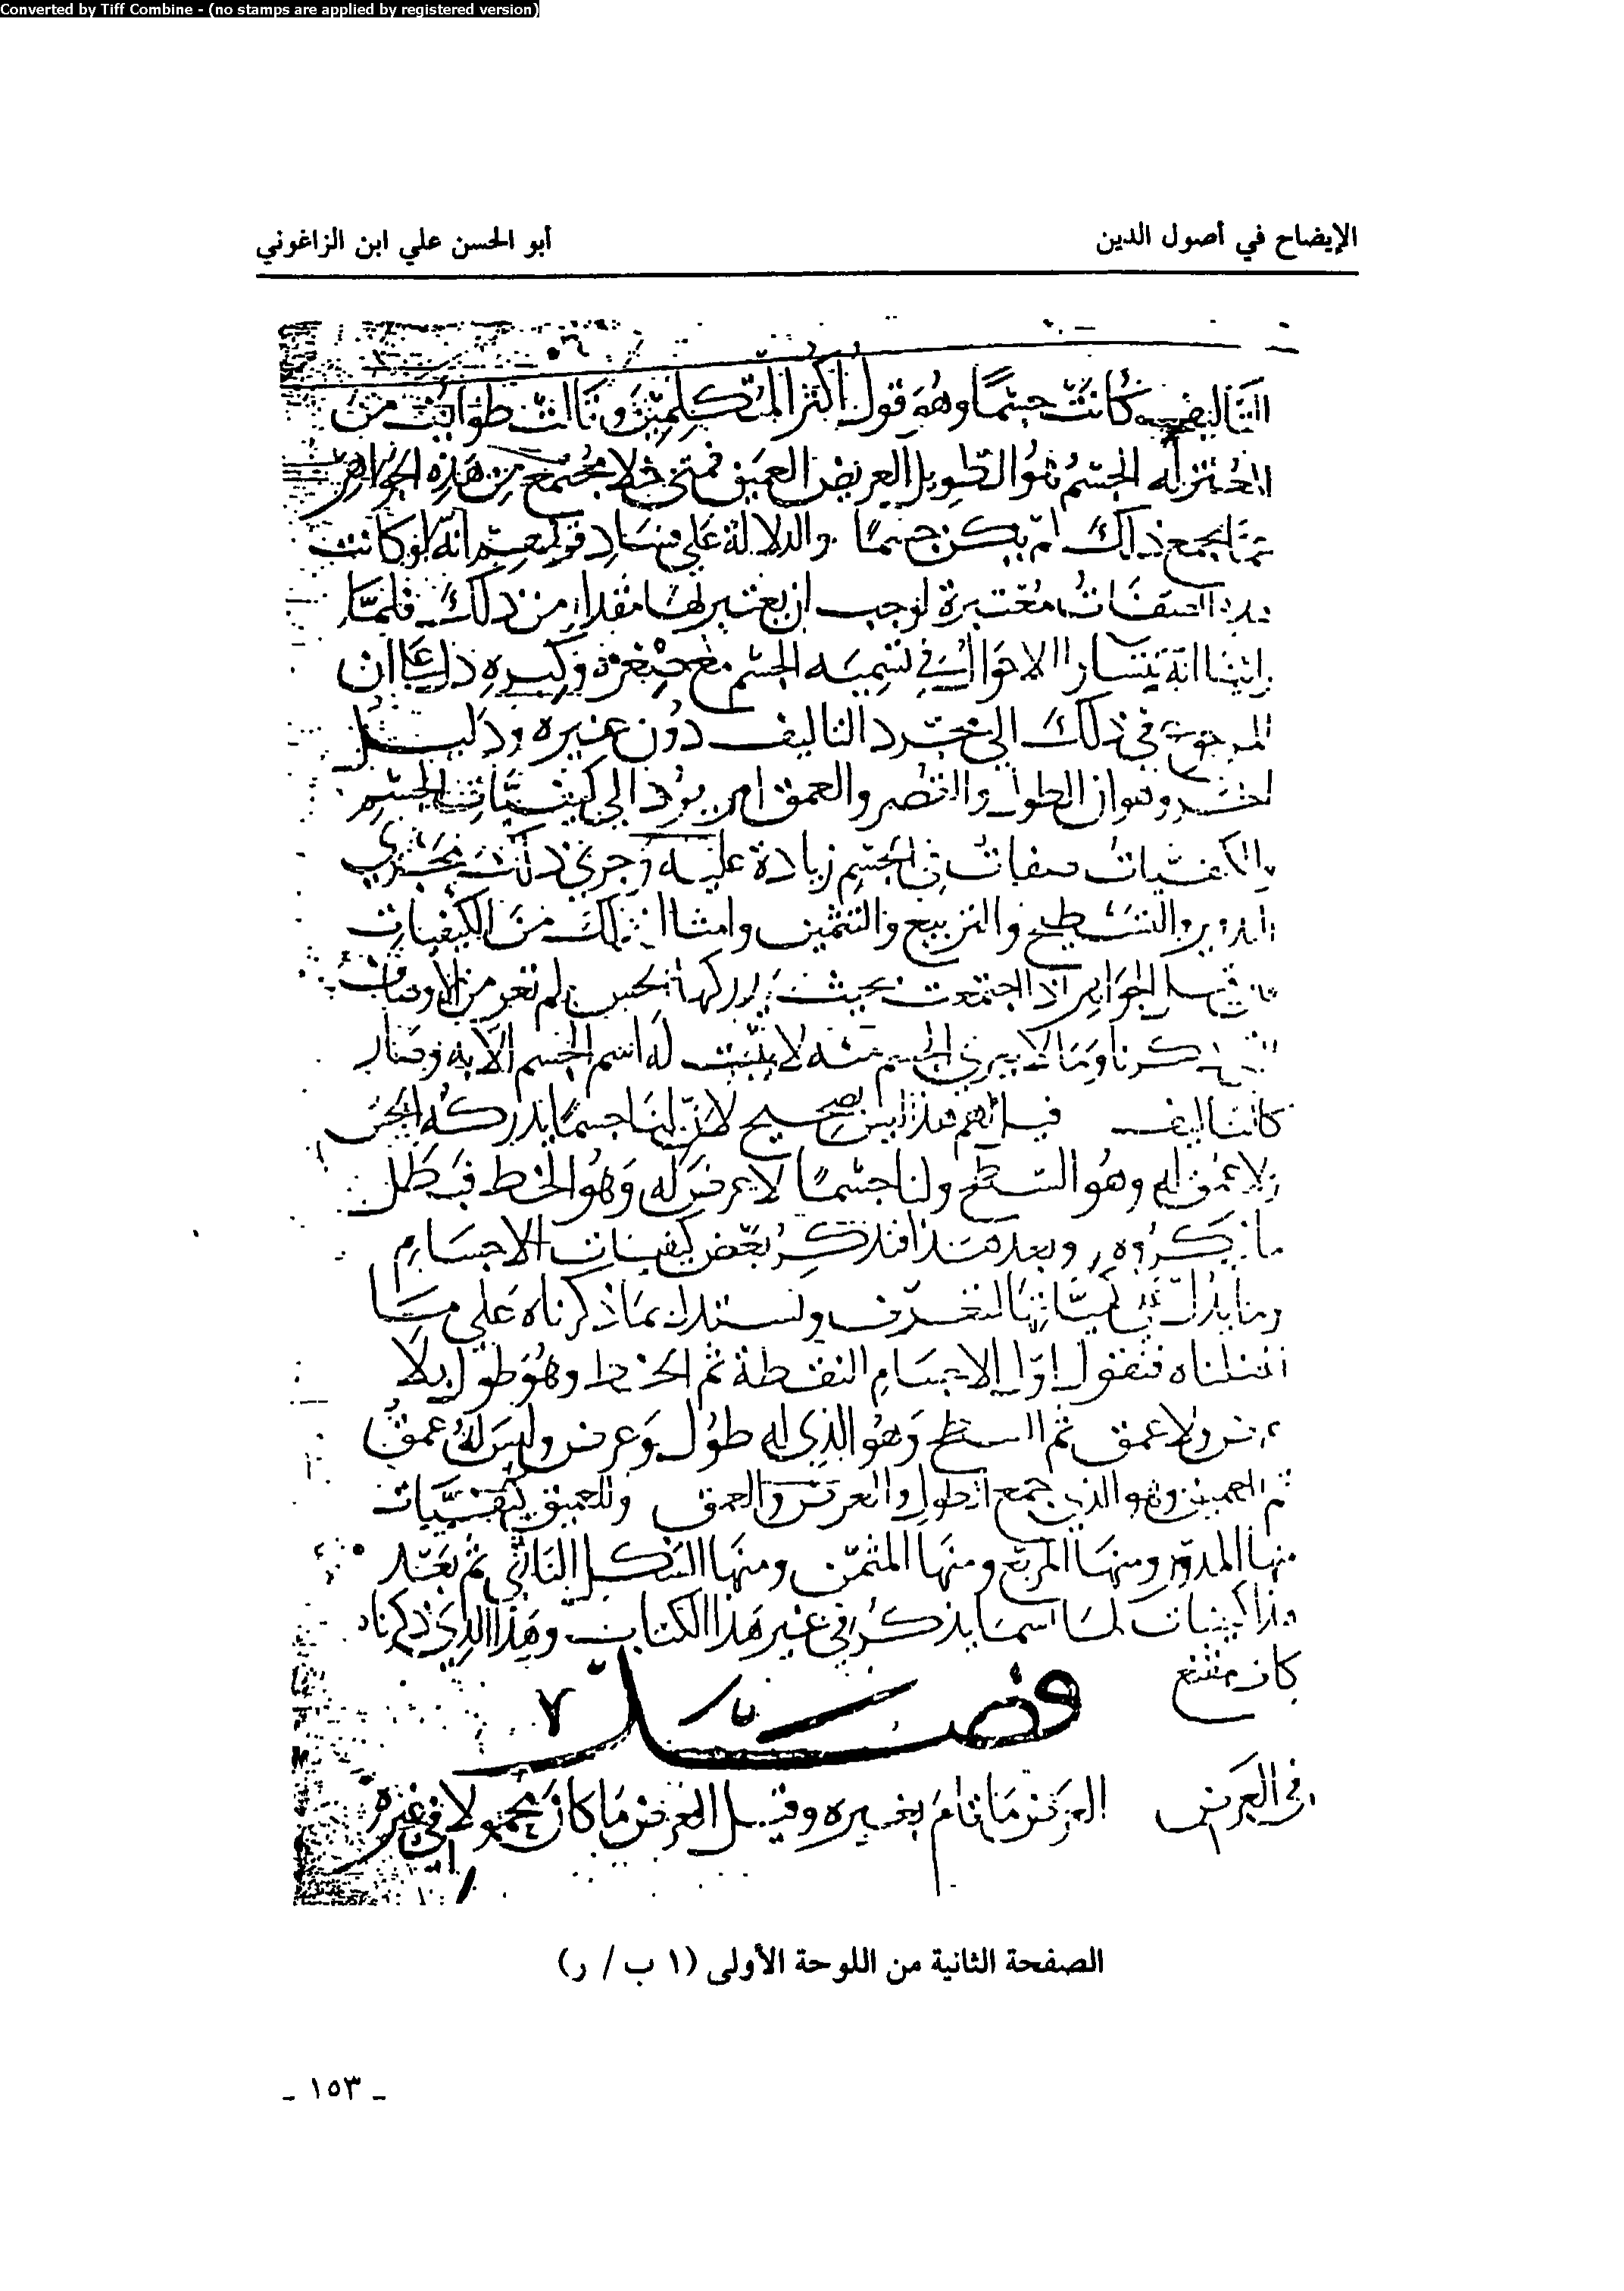 Converted by Tiff Combine - (no stamps are applied by registered version)
الإيضاح في أصول الدين
أبو الحسن علي ابن الزاغوني
كانت جسمًا وهو قول أكثر المتكلمين وقالت طوائف من
المعتزلة الجسم هو الطويل العريض العميق فمتى خلا مجتمع من هذه الجواهر
مما يجمع ذلك لم يكن جسمًا والدلالة على فساد قولهم انه لو كانت
هذه الصفات معتبرة لوجب ان يعتبر لها مقدار من ذلك فلما
راينا انه يتساوى الاحوال في تسمية الجسم مع صغره وكبره دل على ان
المرجوع في ذلك الى مجرد التاليف دون غيره ودليل
اخر وهو ان الطول والقصر والعمق امر يؤدي الى كيفيات الجسم
والكيفيات صفات في الجسم زيادة عليه وجرى ذلك مجرى
التدوير والتسطيح والتربيع والتثمين وامثال ذلك من الكيفيات
الجواهر اذا اجتمعت بحيث يدركها الحس لم تعر من الاوصاف
ذكرنا وما لا يعرى الجسم منه لا يثبت له اسم الجسم الا به وصار
كالتاليف قيل لهم هذا ليس بصحيح لان لنا جسمًا يدركه الحس
ولا عمق له وهو السطح ولنا جسمًا لا عرض له وهو الخط فبطل
ما ذكروه وبعد هذا فنذكر بعض كيفيات الاجسام
وما يدل على التصرف ونستدل بما ذكرناه على ما
فنقول اول الاجسام النقطة ثم الخط وهو طول بلا
عرض ولا عمق ثم السطح وهو الذي له طول وعرض وليس له عمق
ثم العميق وهو الذي جمع الطول والعرض والعمق وللعميق كيفيات
منها المدور ومنها المربع ومنها المثمن ومنها الشكل الناتي ثم بعد
هذا كيفيات لها اسما يذكر في غير هذا الكتاب وهذا الذي ذكرناه
كان مقنع
فصل
في العرض العرض ما قام بغيره وقيل العرض ما كان محمولا في غيره
الصفحة الثانية من اللوحة الأولى (١ ب / ر)
- ١٥٣ -